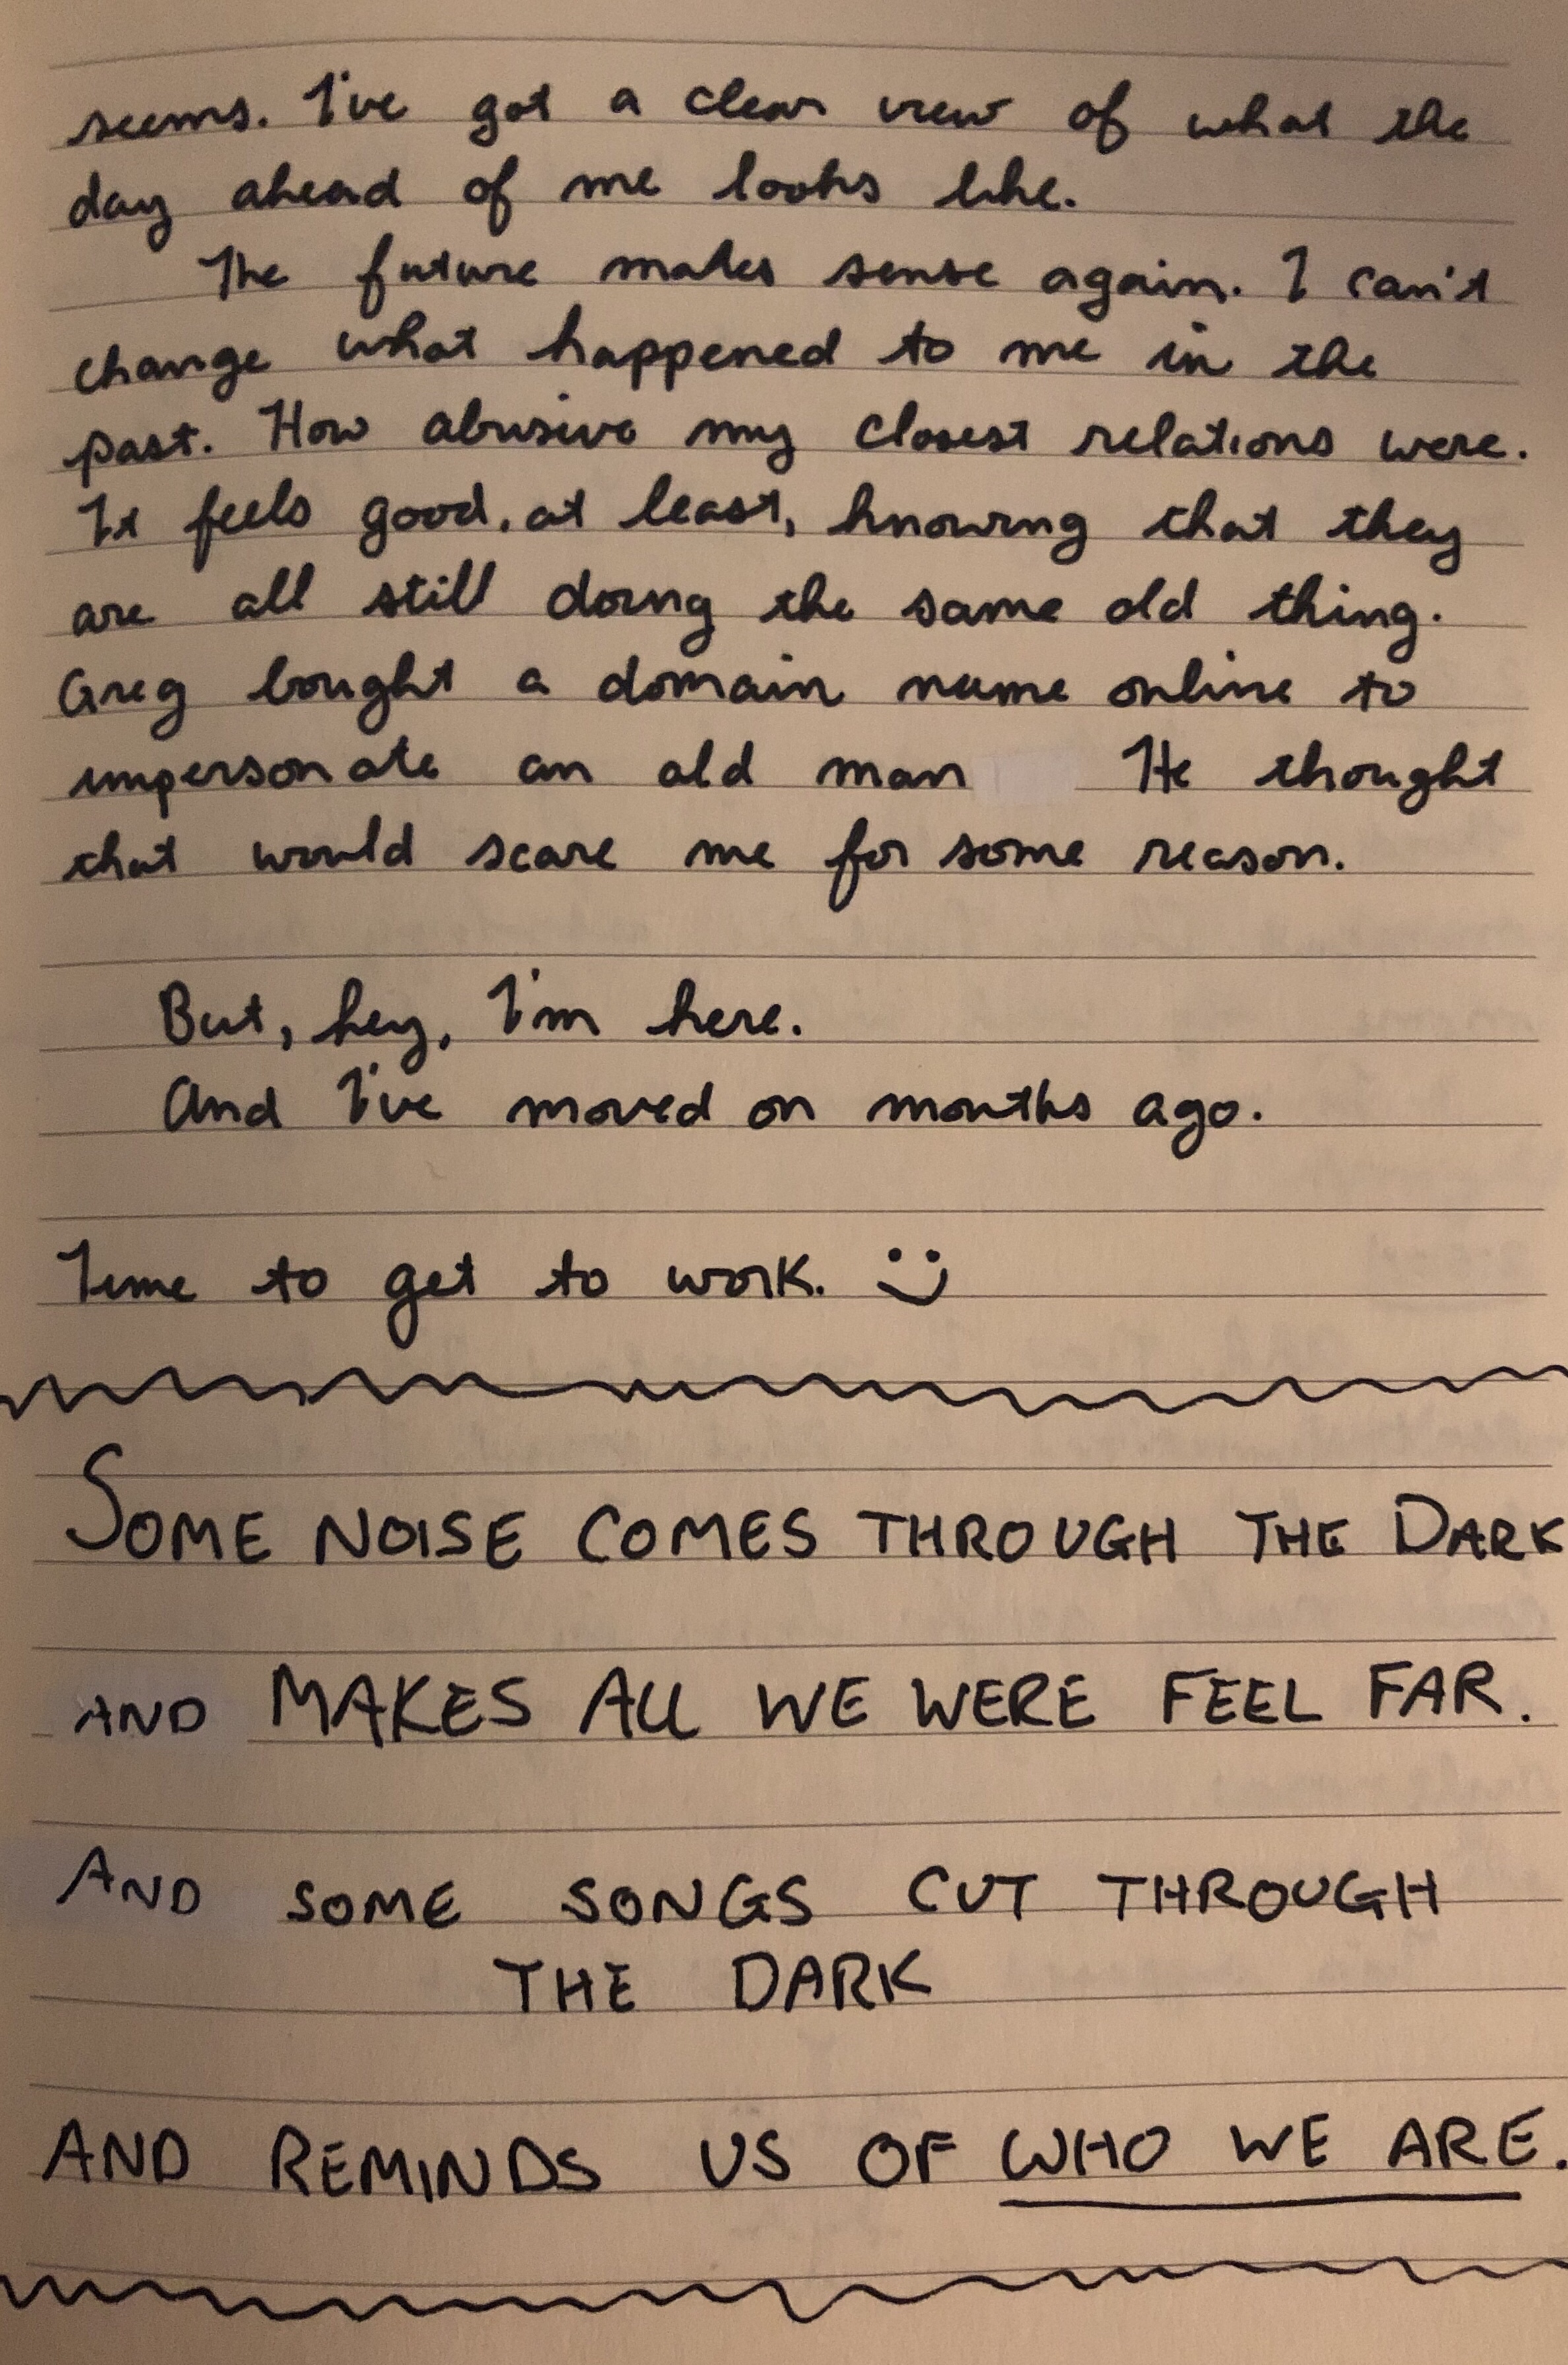 seems. I've got a clear view of what the
day ahead of me looks like.
The future makes sense again. I can't
change what happened to me in the
past. How abusive my closest relations were.
It feels good, at least, knowing that they
are all still doing the same old thing.
Greg bought a domain name online to
impersonate an old man He thought
that would scare me for some reason.
But, hey, I'm here.
And I've moved on months ago.
Time to get to work. :)
SOME NOISE COMES THROUGH THE DARK
AND MAKES ALL WE WERE FEEL FAR.
AND SOME SONGS CUT THROUGH
THE DARK
AND REMINDS US OF WHO WE ARE.